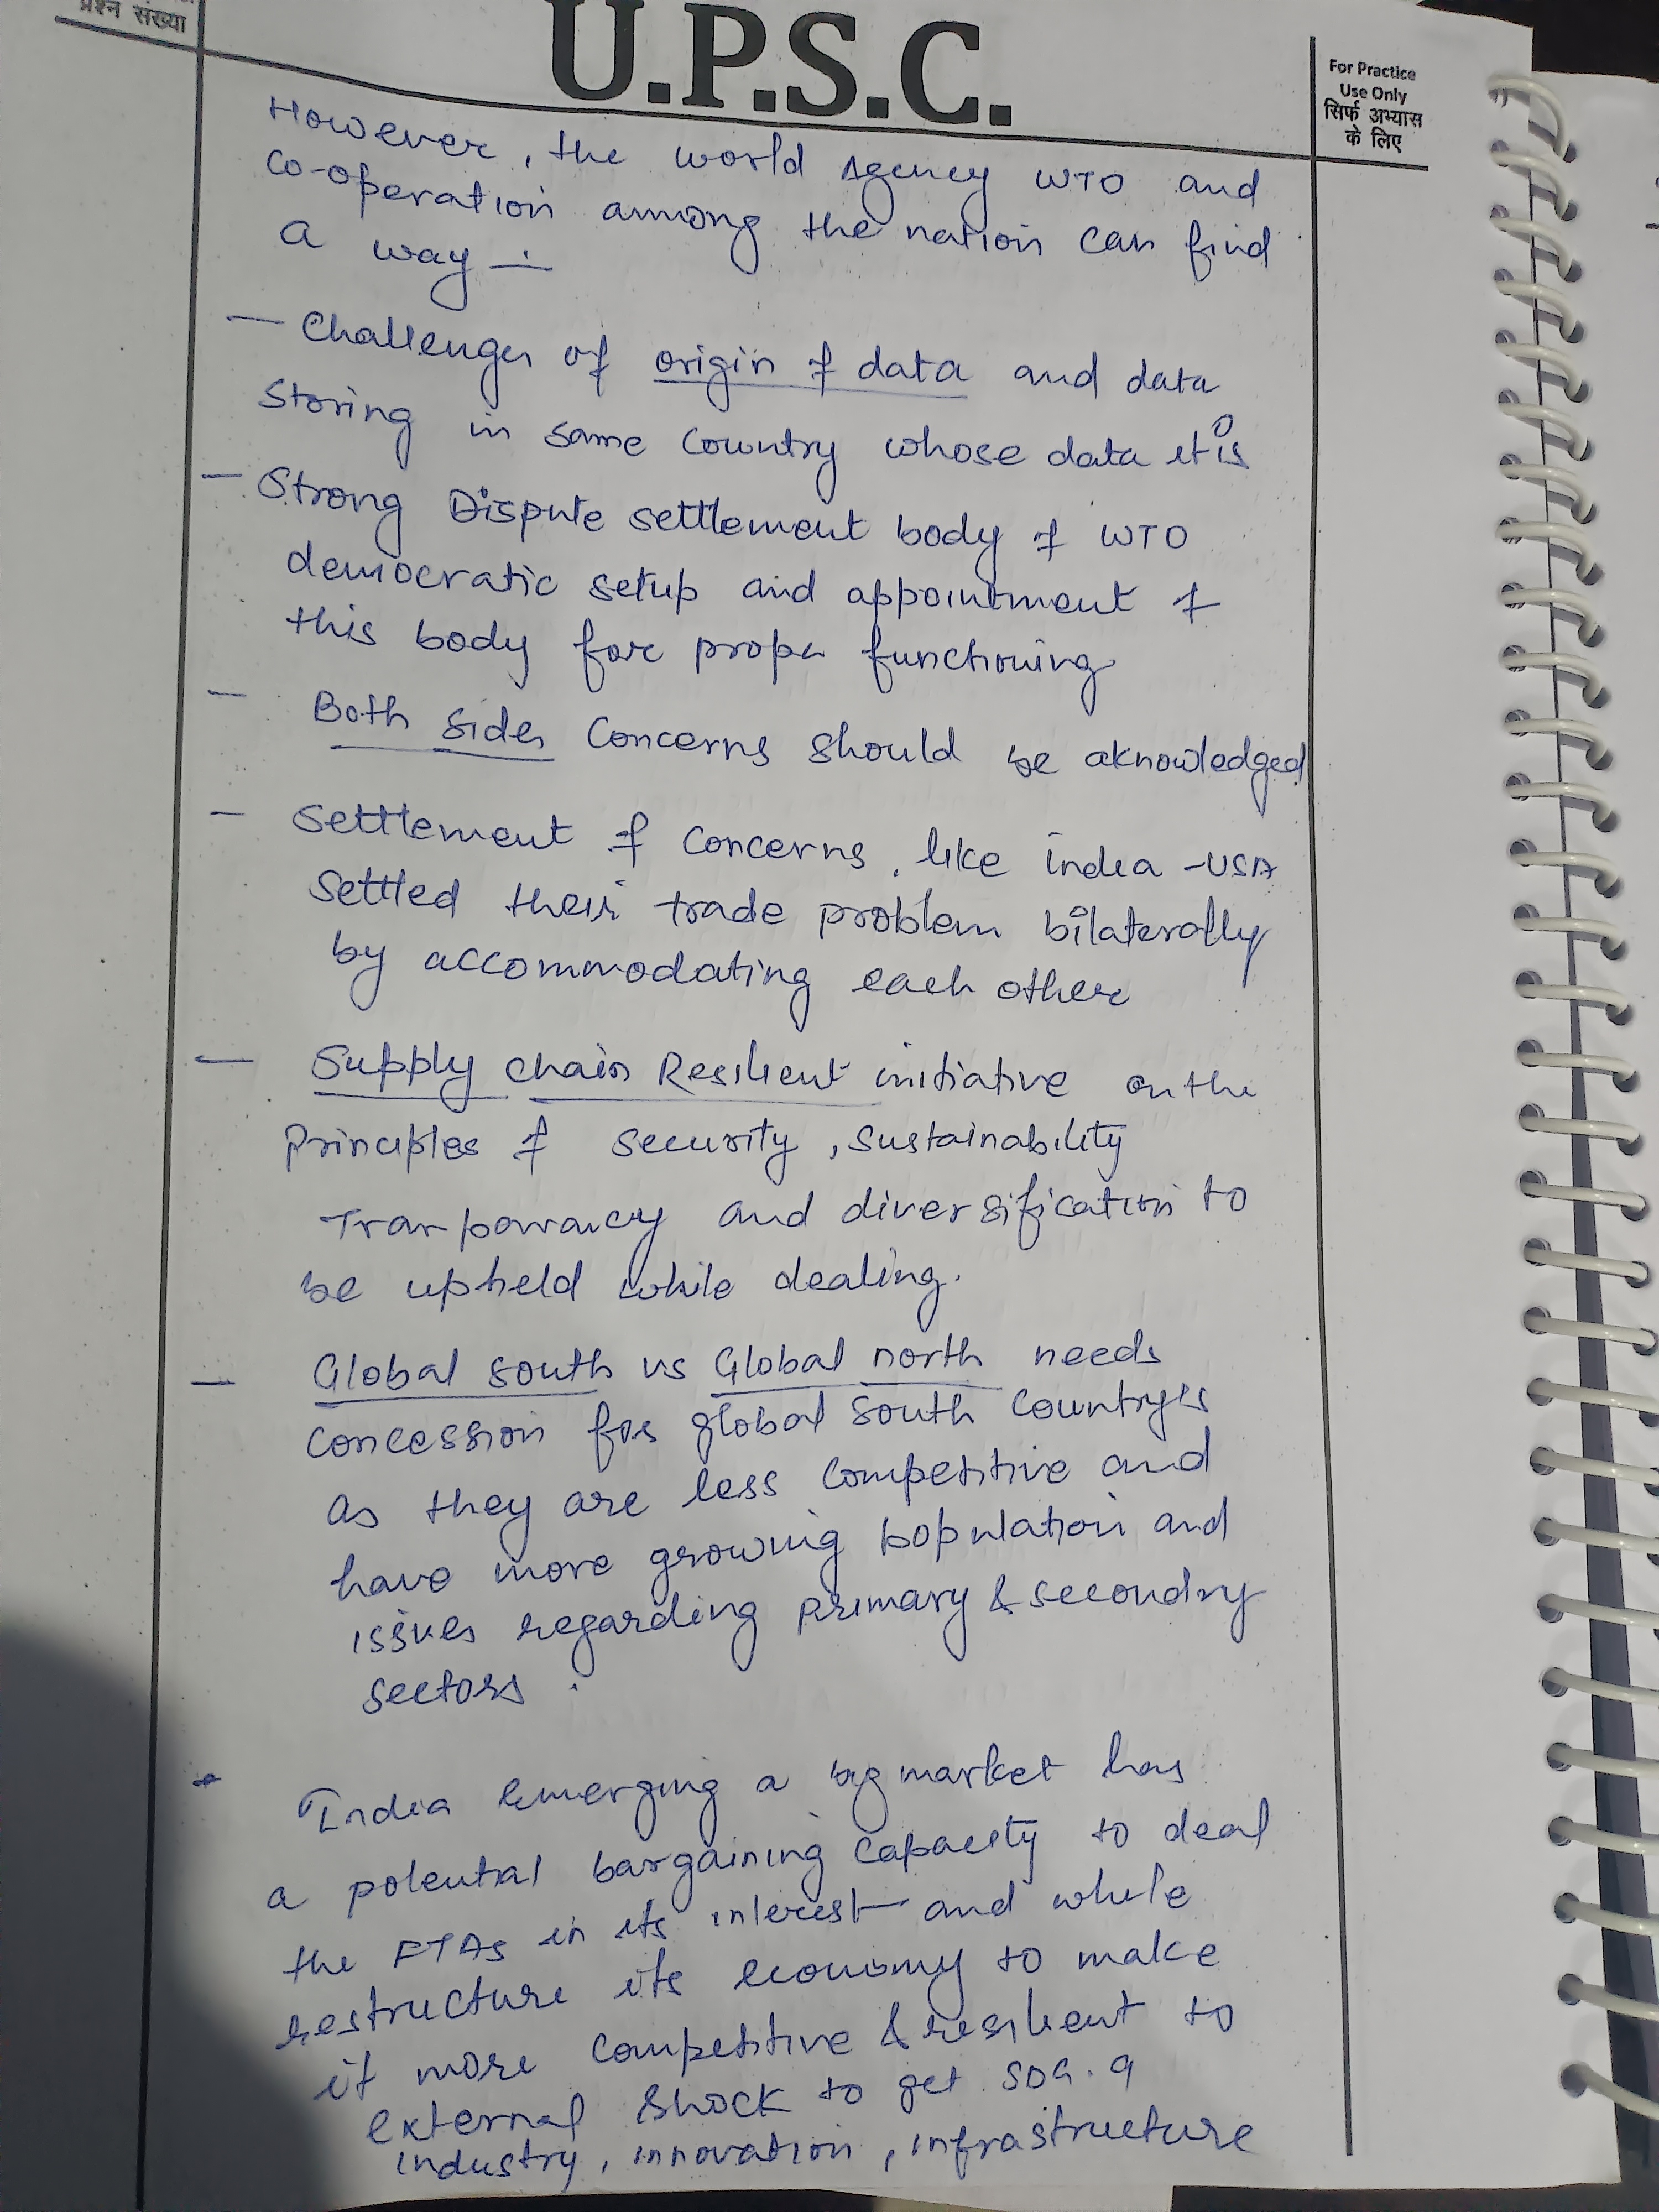 प्रश्न संख्या
U.P.S.C.
For Practice
Use Only
सिर्फ अभ्यास
के लिए
However, the world Agency WTO and
co-operation among the nation can find
a way :-
- Challenges of origin of data and data
storing in same country whose data it is
- Strong Dispute settlement body of WTO
democratic setup and appointment of
this body for proper functioning
- Both sides concerns should be aknowledged
- Settlement of concerns, like india - USA
settled their trade problem bilaterally
by accommodating each other
- Supply chain Resilient initiative on the
Principles of security, sustainability
Tranparancy and diversification to
be upheld while dealing.
- Global south vs Global north needs
concession for global south countryes
as they are less competitive and
have more growing population and
issues regarding primary & secondry
sectors.
India emerging a big market has
a potential bargaining capacity to deal
the FTAs in its interest and while
restructure its economy to make
it more competitive & resilient to
external shock to get SDG. 9
industry, innovation, infrastructure